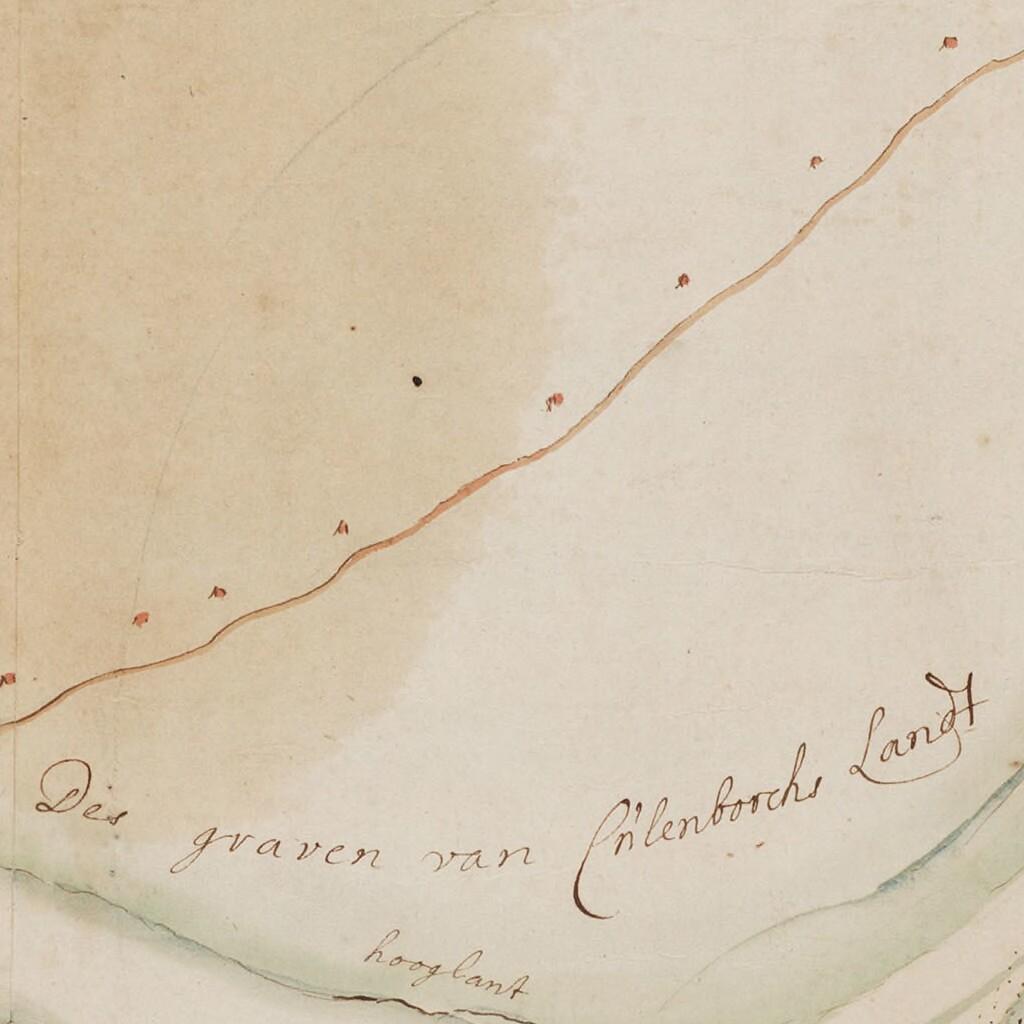 Des graven van Cüilenborchs Landt
hooglant